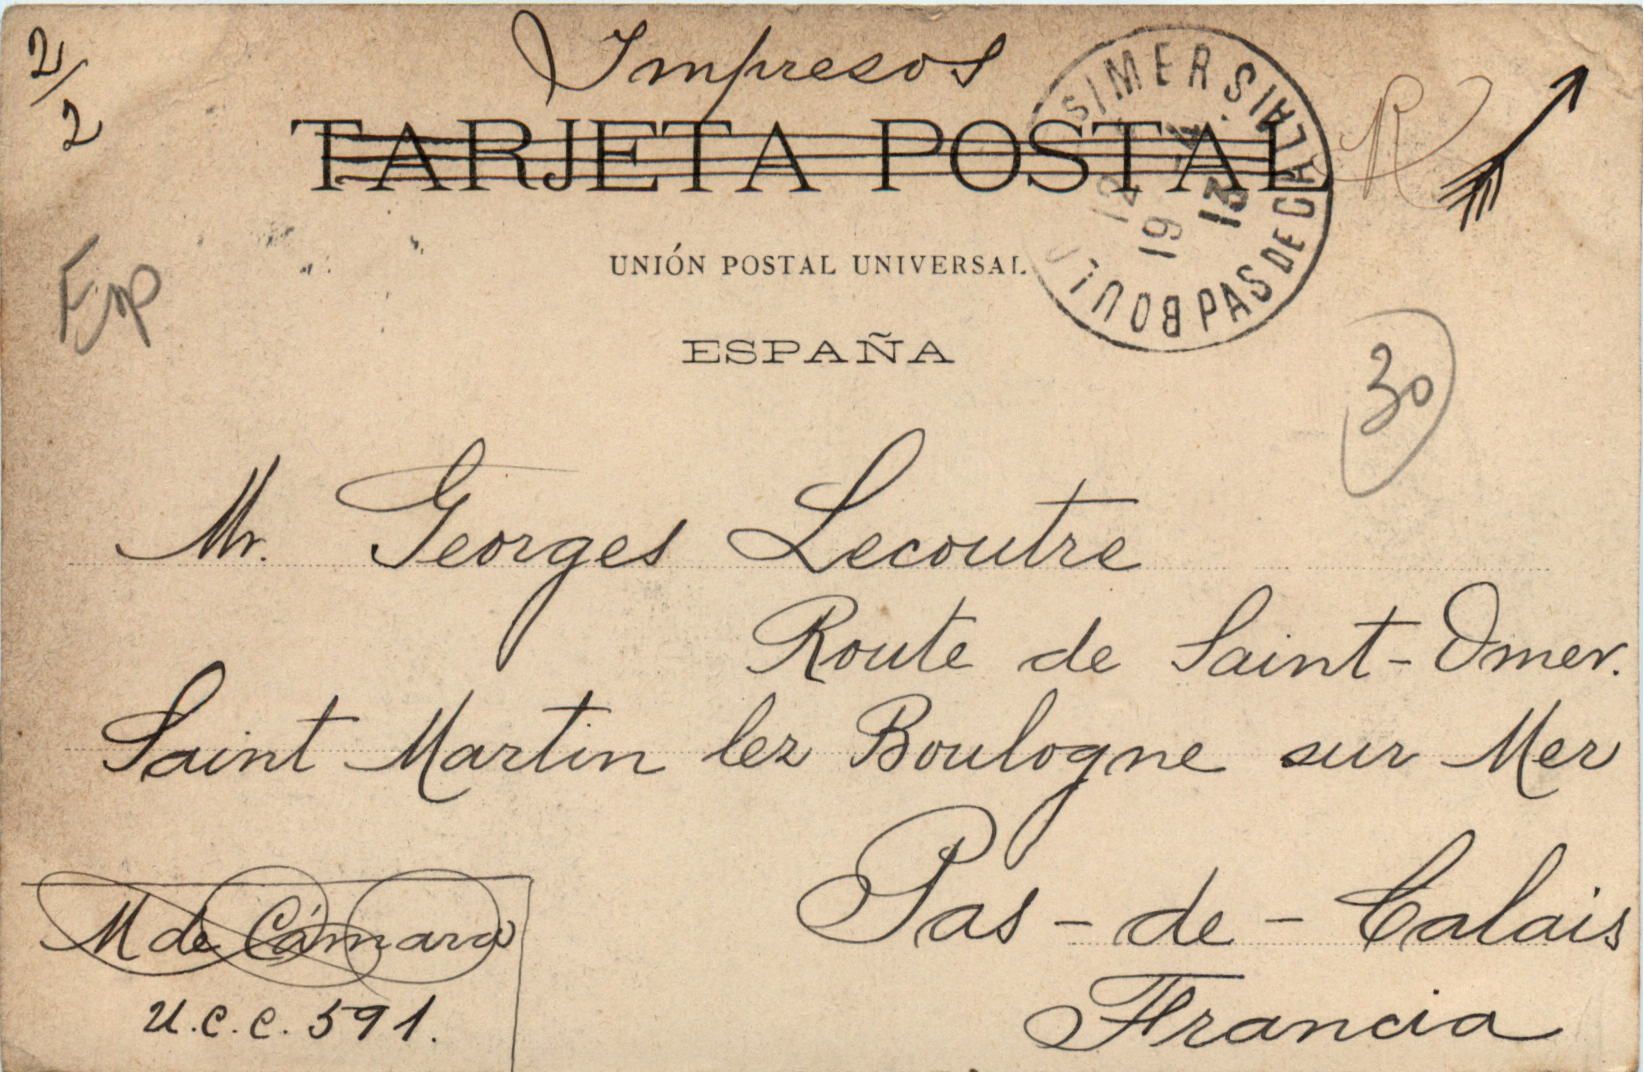 2/2
Impresos
TARJETA POSTAL
R
UNIÓN POSTAL UNIVERSAL
ESPAÑA
PAS DE CALAIS
12
19
13
30
Mr. Georges Lecoutre
Route de Saint-Omer.
Saint Martin lez Boulogne sur Mer
Pas-de-Calais
Francia
M de Cámara
U.C.C. 591.